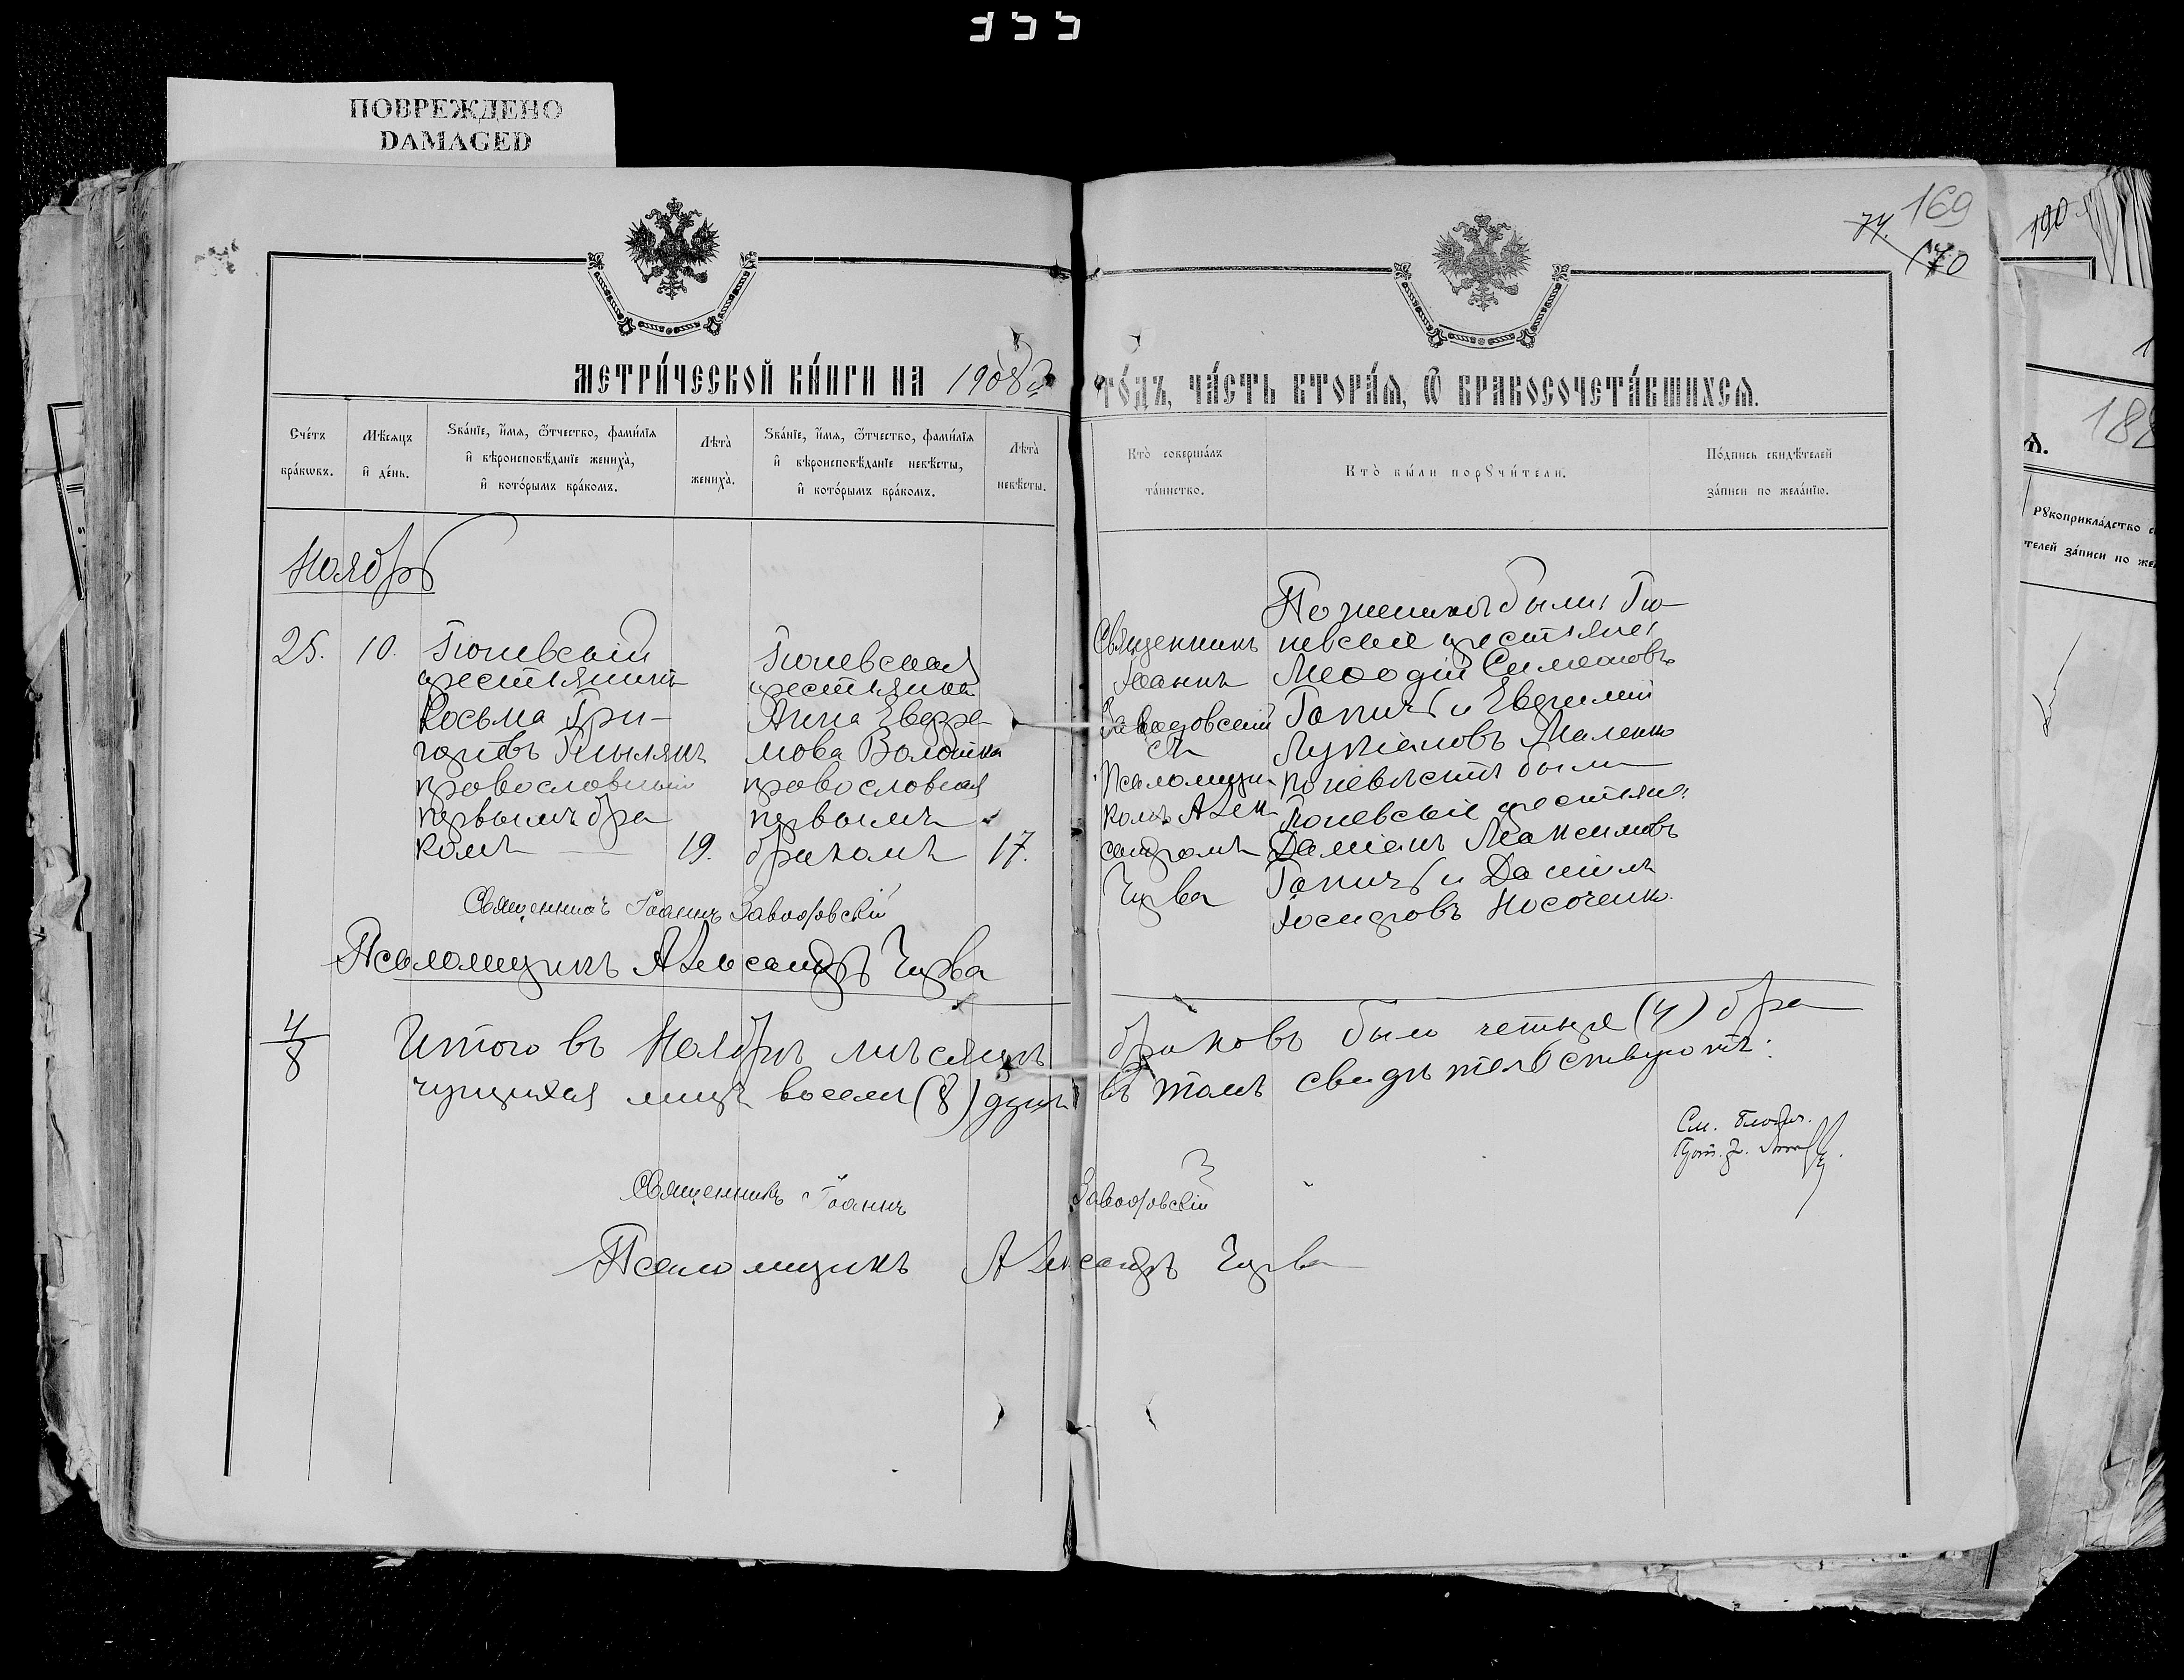 ПОВРЕЖДЕНО
DAMAGED
169
74.
170
190
188
МЕТРИ́ЧЕСКОЙ КНИ́ГИ НА 1908 й
ГО́ДЪ, ЧА́СТЬ ВТОРА́Ѧ, Ѿ БРАКОСОЧЕТА́ВШИХСѦ.
Сче́тъ бра́ковъ.
Мѣ́сяцъ и́ де́нь.
Ѕва́нїе, и́мѧ, ѻ́тчество, фами́лїѧ и́ вѣроисповѣ́данїе жениха̀, и́ кото́рымъ бра́комъ.
Лѣта̀ жениха̀.
Ѕва́нїе, и́мѧ, ѻ́тчество, фами́лїѧ и́ вѣроисповѣ́данїе невѣ́сты, и́ кото́рымъ бра́комъ.
Лѣта̀ невѣ́сты.
Кто̀ соверша́лъ та́инство.
Кто̀ бы́ли порꙋчи́тели.
По́дпись свидѣ́телей за́писи по жела́нїю.
Ноябрь
25.
10.
крестьянинъ
Косьма Гри-
горіевъ
православный
первымъ бра
комъ
19.
крестьянка
Анна Евфре
мова Волошина
православная
первымъ
бракомъ
17.
Священникъ
Іоаннъ
Заводовскій
съ
Псаломщи-
комъ Алек
сандромъ
Чирва
По женихѣ были:
крестьяне:
Меѳодій Симеоновъ
Гапичъ и Евфимій
Лукіановъ Маленко
по невѣстѣ были
крестьяне:
Даміанъ Максимовъ
Гапичъ и Даніилъ
Исидоровъ Носоченко.
Священникъ Іоаннъ Заводовскій
Псаломщикъ Александръ Чирва
4
8
Итого въ Ноябрѣ мѣсяцѣ браковъ было четыре (4) бра
чущихся лицъ восемь (8) душъ въ томъ свидѣтельствуютъ:
См. Благоч.
Священникъ Іоаннъ Заводовскій
Псаломщикъ Александръ Чирва